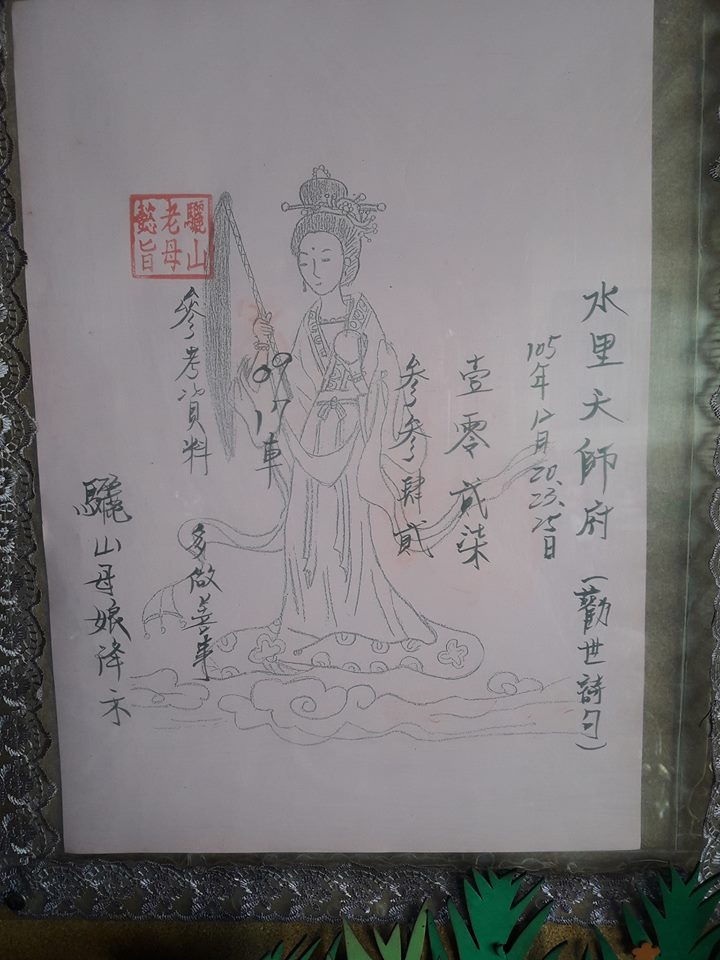 水里天師府(勸世詩句)
105年12月20.23.25日
壹零貳柒
參參肆貳
09 17車
參考資料
多做善事
驪山母娘降示
驪山
老母
懿旨